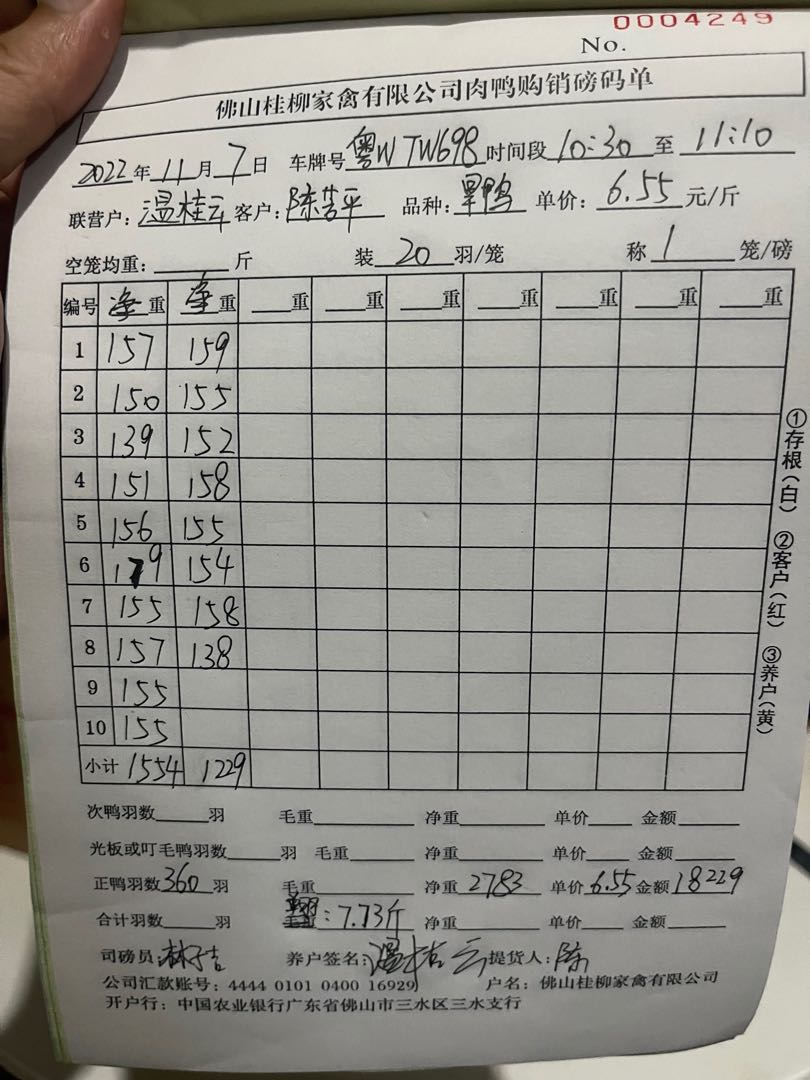 0004249
No.
佛山桂柳家禽有限公司肉鸭购销磅码单
2022年11月7日 车牌号粤W TW698时间段10:30至11:10
联营户:温桂云客户:陈 平 品种:黑鸭 单价:6.55元/斤
空笼均重:____斤 装20羽/笼 称1笼/磅
编号 净重 净重 __重 __重 __重 __重 __重 __重 __重
1 157 159
2 150 155
3 139 152
4 151 158
5 156 155
6 179 154
7 155 158
8 157 138
9 155
10 155
小计 1554 1229
①存根(白) ②客户(红) ③养户(黄)
次鸭羽数____羽 毛重____ 净重____ 单价____ 金额____
光板或叮毛鸭羽数____羽 毛重____ 净重____ 单价____ 金额____
正鸭羽数360羽 毛重____ 净重2783 单价6.55金额18229
合计羽数____羽 :7.73斤 净重____ 单价____ 金额____
司磅员:林子吉 养户签名:温桂云提货人:陈
公司汇款账号:4444 0101 0400 16929 户名:佛山桂柳家禽有限公司
开户行:中国农业银行广东省佛山市三水区三水支行